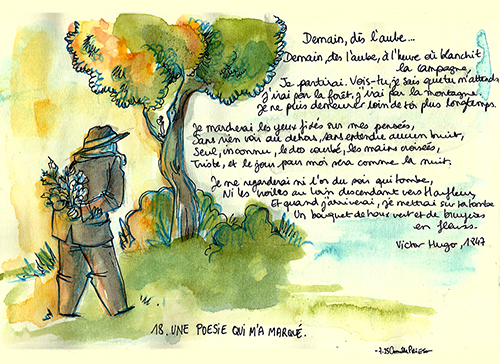 Demain, dès l'aube...
Demain, dès l'aube, à l'heure où blanchit
la campagne,
Je partirai. Vois-tu, je sais que tu m'attends
j'irai par la forêt, j'irai par la montagne
je ne puis demeurer loin de toi plus longtemps.
Je marcherai les yeux fixés sur mes pensées,
Sans rien voir au dehors, sans entendre aucun bruit,
Seul, inconnu, le dos courbé, les mains croisées,
Triste, et le jour pour moi sera comme la nuit.
Je ne regarderai ni l'or du soir qui tombe,
Ni les voiles au loin descendant vers Harfleur,
Et quand j'arriverai, je mettrai sur ta tombe
Un bouquet de houx vert et de bruyère
en fleurs.
Victor Hugo, 1847
18. UNE POESIE QUI M'A MARQUÉ.